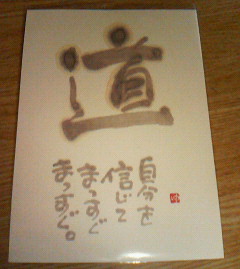 道
自分を
信じて
まっすぐ
まっすぐ。